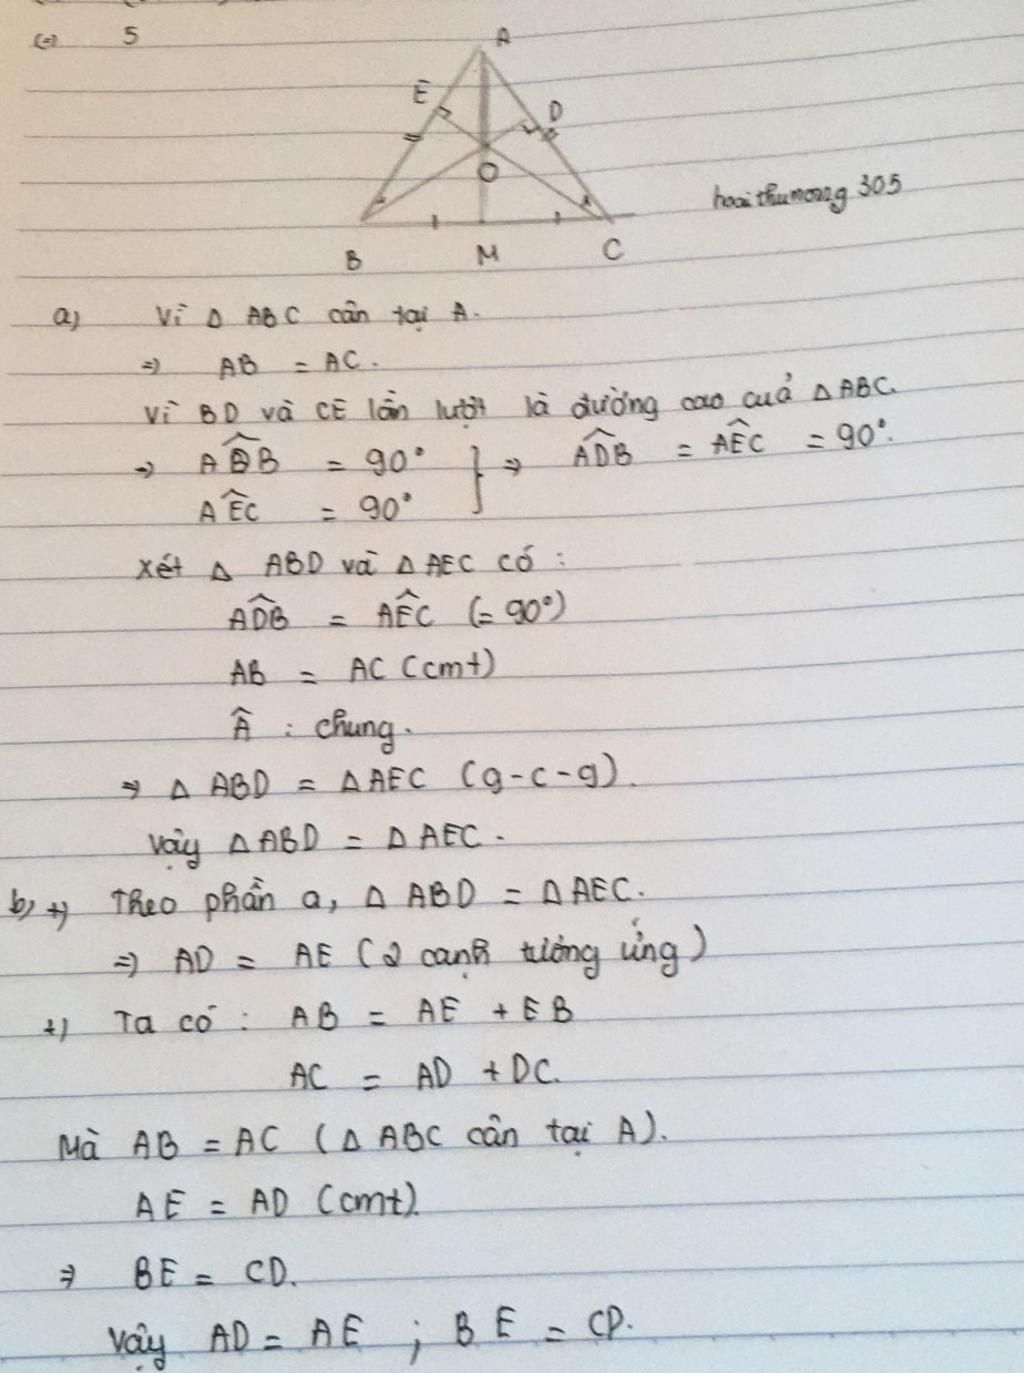 (=) 5
A
E
D
O
hoaithuwowng 305
B M C
a) Vì Δ ABC cân tại A.
=) AB = AC.
Vì BD và CE lần lượt là đường cao cuả ΔABC.
=> ADB = 90° } => ADB = AEC = 90°.
AEC = 90°
Xét Δ ABD và Δ AEC có :
ADB = AEC (= 90°)
AB = AC (cmt)
Â : chung.
=> Δ ABD = Δ AEC (g-c-g).
Vậy Δ ABD = Δ AEC.
b, +) Theo phần a, Δ ABD = Δ AEC.
=) AD = AE (2 cạnh tương ứng)
+) Ta có : AB = AE + EB
AC = AD + DC.
Mà AB = AC (Δ ABC cân tại A).
AE = AD (cmt).
=> BE = CD.
Vậy AD = AE ; BE = CD.